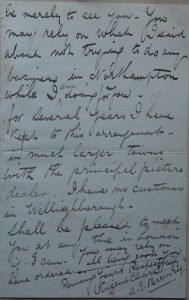 be merely to see you. You
may rely on what I said
about not trying to do any
business in Northampton
while I am doing for you.
For several years I have
kept to this arrangement
in much larger towns
with the principal picture
dealer. I have no customer
in Wellingborough.
Shall be pleased to meet
you at any time in London
if I can. You may rely on
have ordered all being good
Remain Yours Respectfully